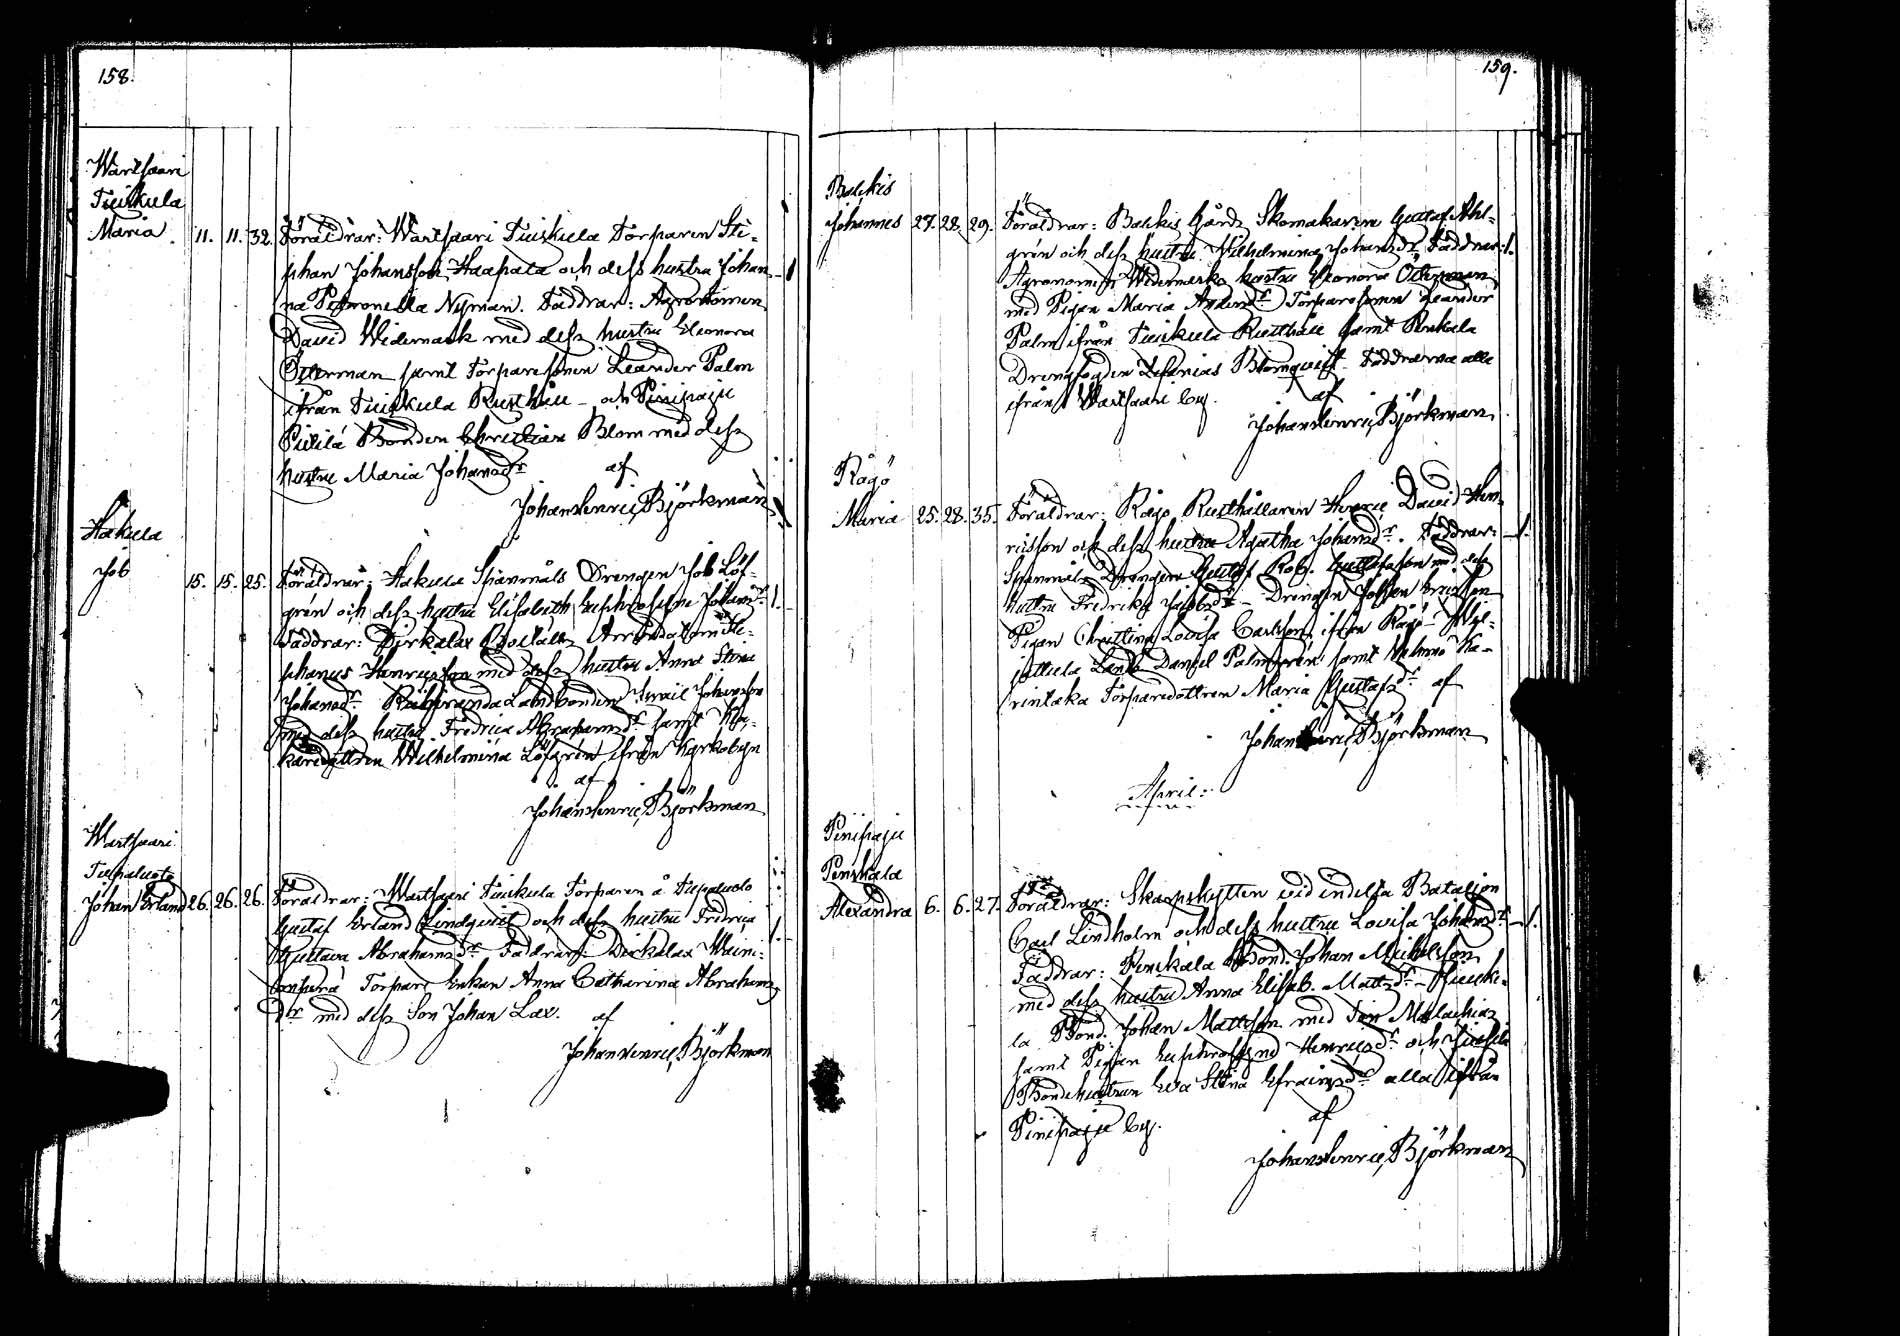 158.
Wartsaari
Tuiskula
Maria 11. 11. 32. Föräldrar: Wartsaari Tuiskula Torparen Ste-
phan Johansson Haapala och dess hustru Johan-
na Petronella Nyman. Faddrar: Agronomen
David Widernark med dess hustru Eleonora
Österman samt Torparesonen Leander Palm
ifrån Tuiskula Rusthåll och Pinipaju
Bonden Christian Blom med dess
hustru Maria Johansdr af
Johan Henric Björkman
Hakula
Job 15. 15. 25. Föräldrar: Hakula Spännmåls Drengen Job Löf-
grén och dess hustru Elisabeth Euphrosine Johansdr
Faddrar: Dirkalax Boställs Ste-
phanus Henricsson med dess hustru Anna Stina
Johansdr Landbonden Israil Johansson
med dess hustru Fredrica Abrahamsdr samt
Wilhelmina Löfgrén ifrån Kyrkobyn
af
Johan Henric Björkman
Wartsaari
Tupaluoto
Johan Erland 26. 26. 26. Föräldrar: Wartsaari Tuiskula Torparen å Tupaluoto
Gustaf Erland Lindqvist och dess hustru Fredrica
Gustava Abrahamsdr Faddrar: Dirkalax
Torpare Enkan Anna Catharina Abrahams
dr med dess Son Johan Lax. af
Johan Henric Björkman
159.
Bahkis
Johannes 27. 28. 29. Föräldrar: Bahkis Gårds Skomakaren Gustaf Ahl-
grén och dess hustru Wilhelmina Johansdr Faddrar:
Agronomen Widernarks hustru Eleonora Österman
med Pigan Maria Andersdr Torparesonen Leander
Palm ifrån Tuiskula Rusthåll samt
Drengfogden Zefanias Blomqvist. Faddrarna alla
ifrån Wartsaari by. af
Johan Henric Björkman
Rågö
Maria 25. 28. 35. Föräldrar: Rågö Rusthållaren Henric David Hen-
ricsson och dess hustru Agatha Johansdr. Faddrar:
Spännmåls Drengen Gustaf Rob. Gustafsson med dess
hustru Fredrika Jacobsdr - Drengen Ericsson
Pigan Christina Lovisa Carlsson ifrån Rågö
Daniel Palmgrén samt Ka-
rintaka Torparedottren Maria Gustafsdr af
Johan Henric Björkman
April:
Pinipaju
Penikala
Alexandra 6. 6. 27. Föräldrar: Skarpskytten vid indelta Bataljon
Carl Lindholm och dess hustru Lovisa Johansdr
Faddrar: Penikala Bond. Johan Michelsson
med dess hustru Anna Elisab. Mattsdr -
la Bond. Johan Mattsson med Son Malachias
samt Pigan Euphrosyna Henricsdr och
Bondehustrun Eva Stina Efraimsdr alla ifrån
Pinipaju by. af
Johan Henric Björkman